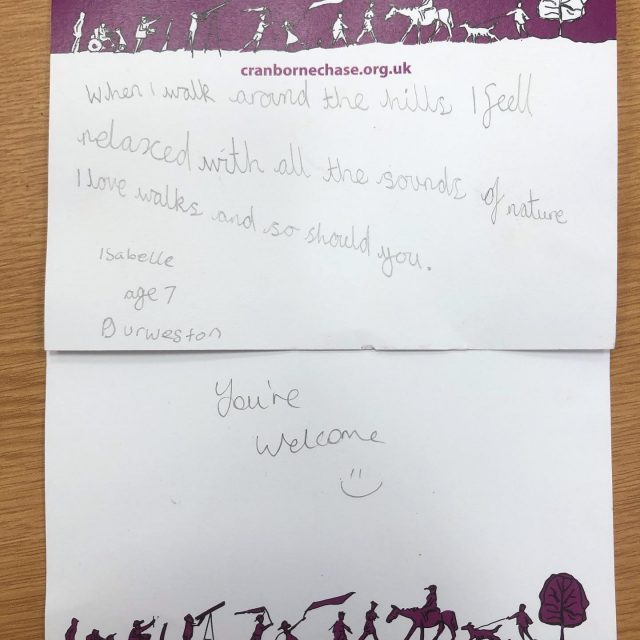 cranbornechase.org.uk
When I walk around the hills I feell
relaxed with all the sounds of nature
I love walks and so should you.
Isabelle
age 7
Durweston
You're
Welcome